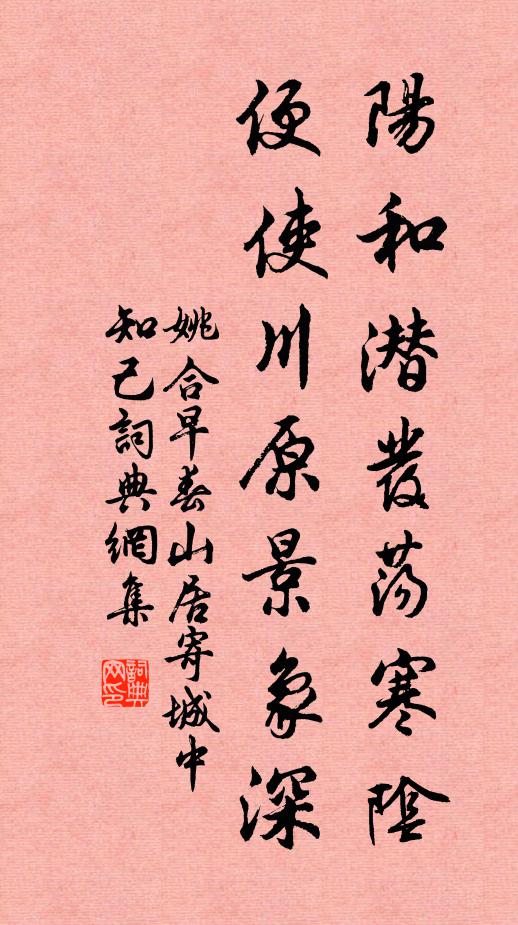 陽和潛發蕩寒陰
便使川原景象深
姚合早春山居寄城中
知己詞典網集
詞典
网印